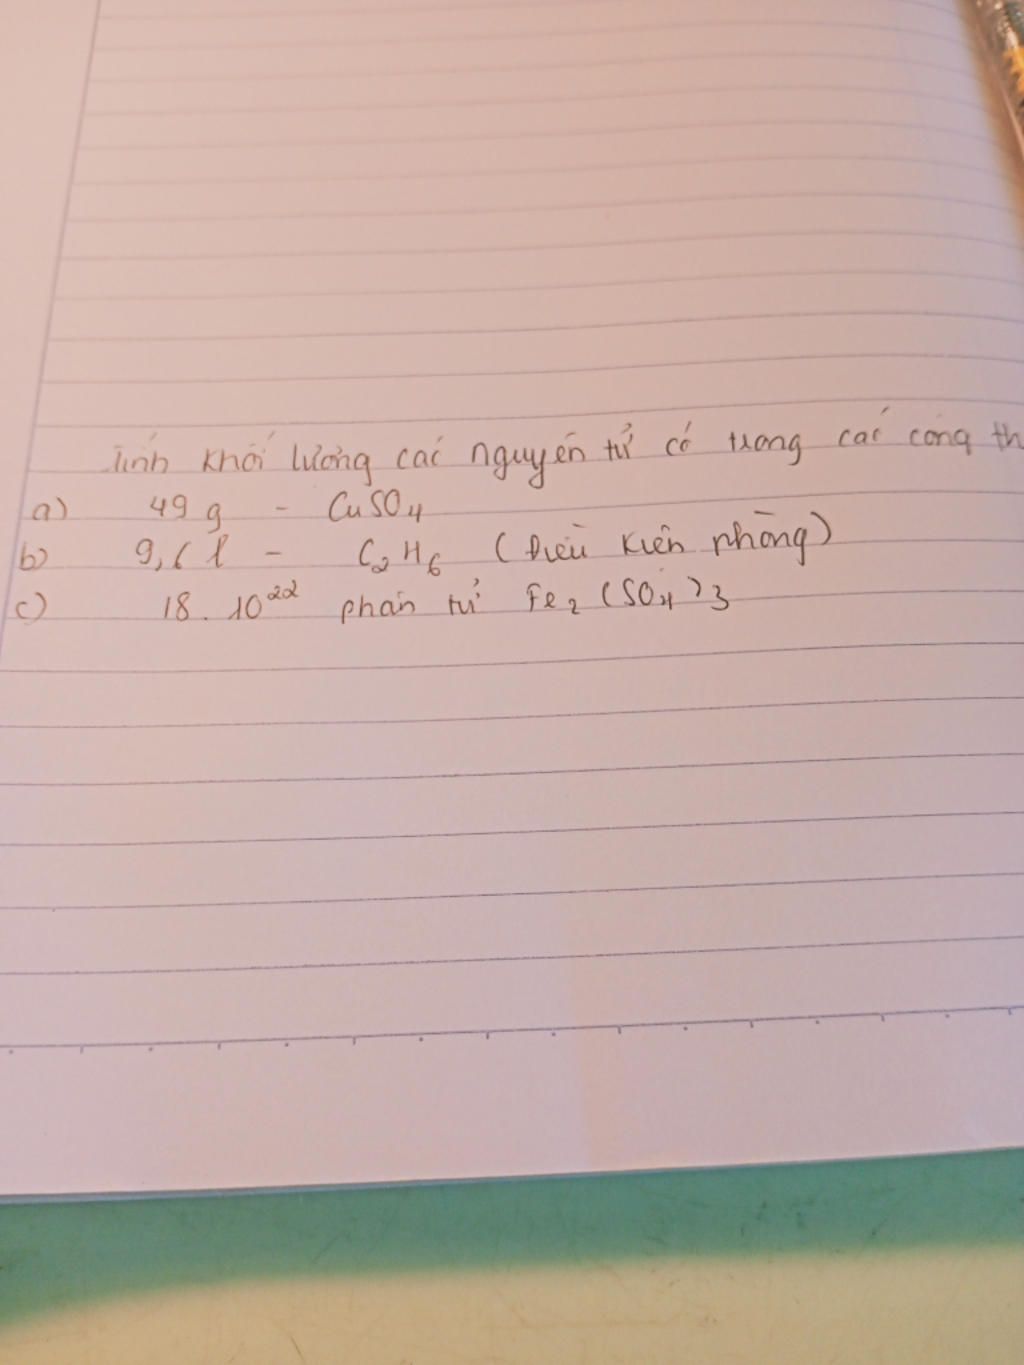 Tính khối lượng các nguyên tử có trong các công th
a) 49 g - CuSO₄
b) 9,6 l - C₂H₆ (Điều kiện phòng)
c) 18 . 10²² phân tử Fe₂(SO₄)₃